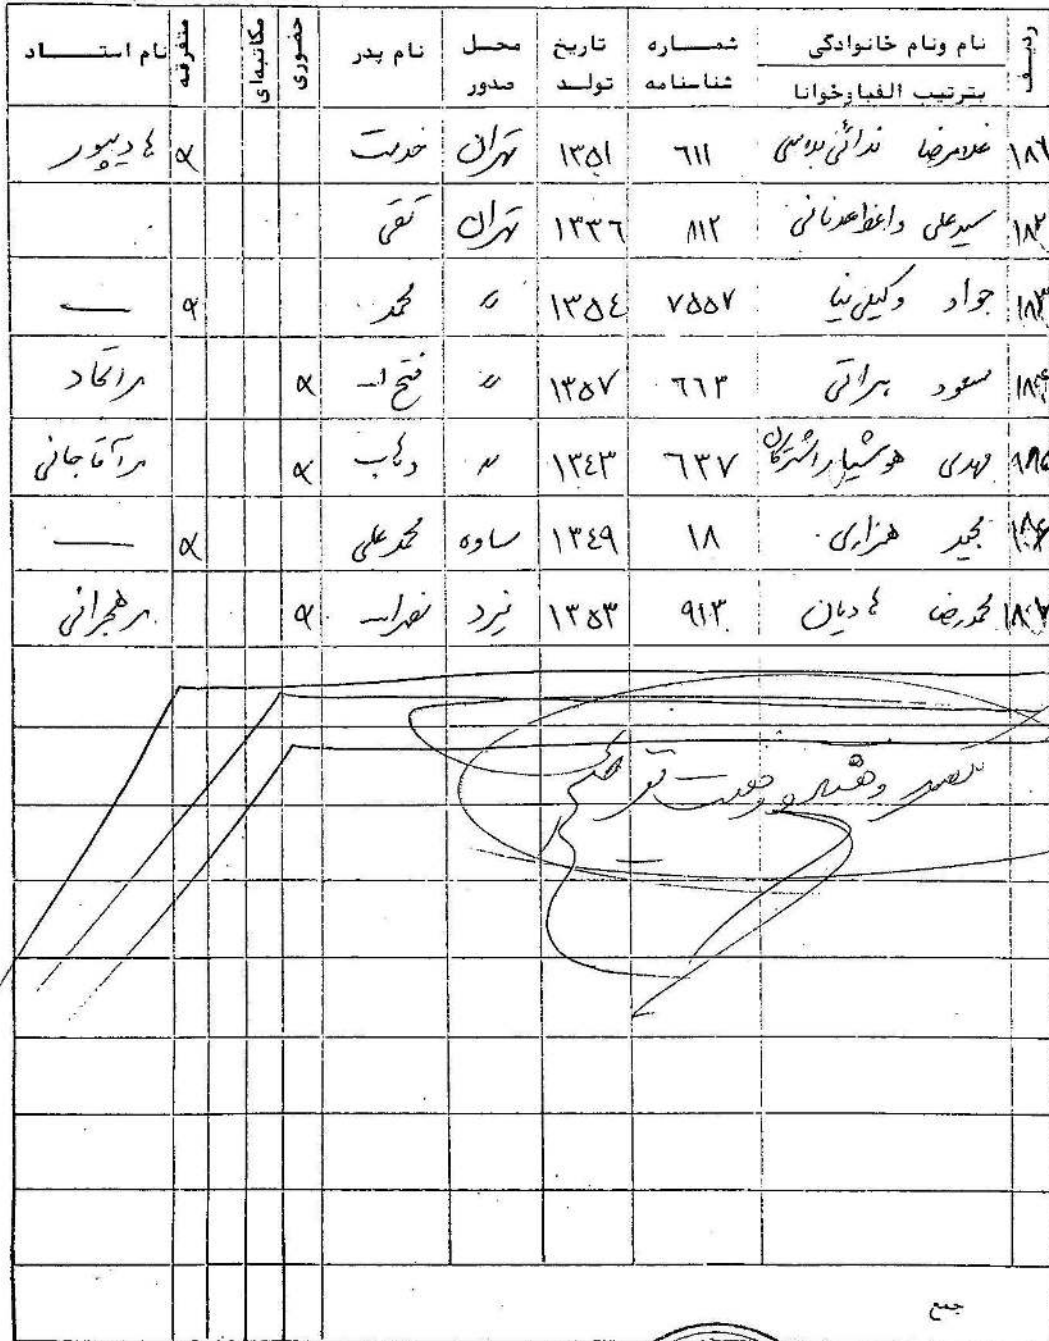 ردیف نام ونام خانوادگی بترتیب الفباوخوانا شمـــاره شناسنامه تاریخ تولــد محــل صدور نام پدر حضوری مکاتبه‌ای متفرقه نام استـــــاد
۱۸۱ غلامرضا ۶۱۱ ۱۳۵۱ تهران خدمت α هادیپور
۱۸۲ سیدعلی واعظ عدنانی ۸۱۲ ۱۳۳۶ تهران تقی
۱۸۳ جواد وکیلی نیا ۷۵۵۷ ۱۳۵٤ 〃 محمد α —
۱۸۴ مسعود براتی ۶۶۳ ۱۳۵۷ 〃 فتح اله α
مهدی هوشیار ۶۳۷ ۱۳٤۳ 〃 وهاب α آقاجانی
۱۸۶ مجید هزاری ۱۸ ۱۳٤۹ ساوه محمدعلی α —
۱۸۷ محمدرضا هادیان ۹۱۳ ۱۳۵۳ یزد نصراله α
جمع